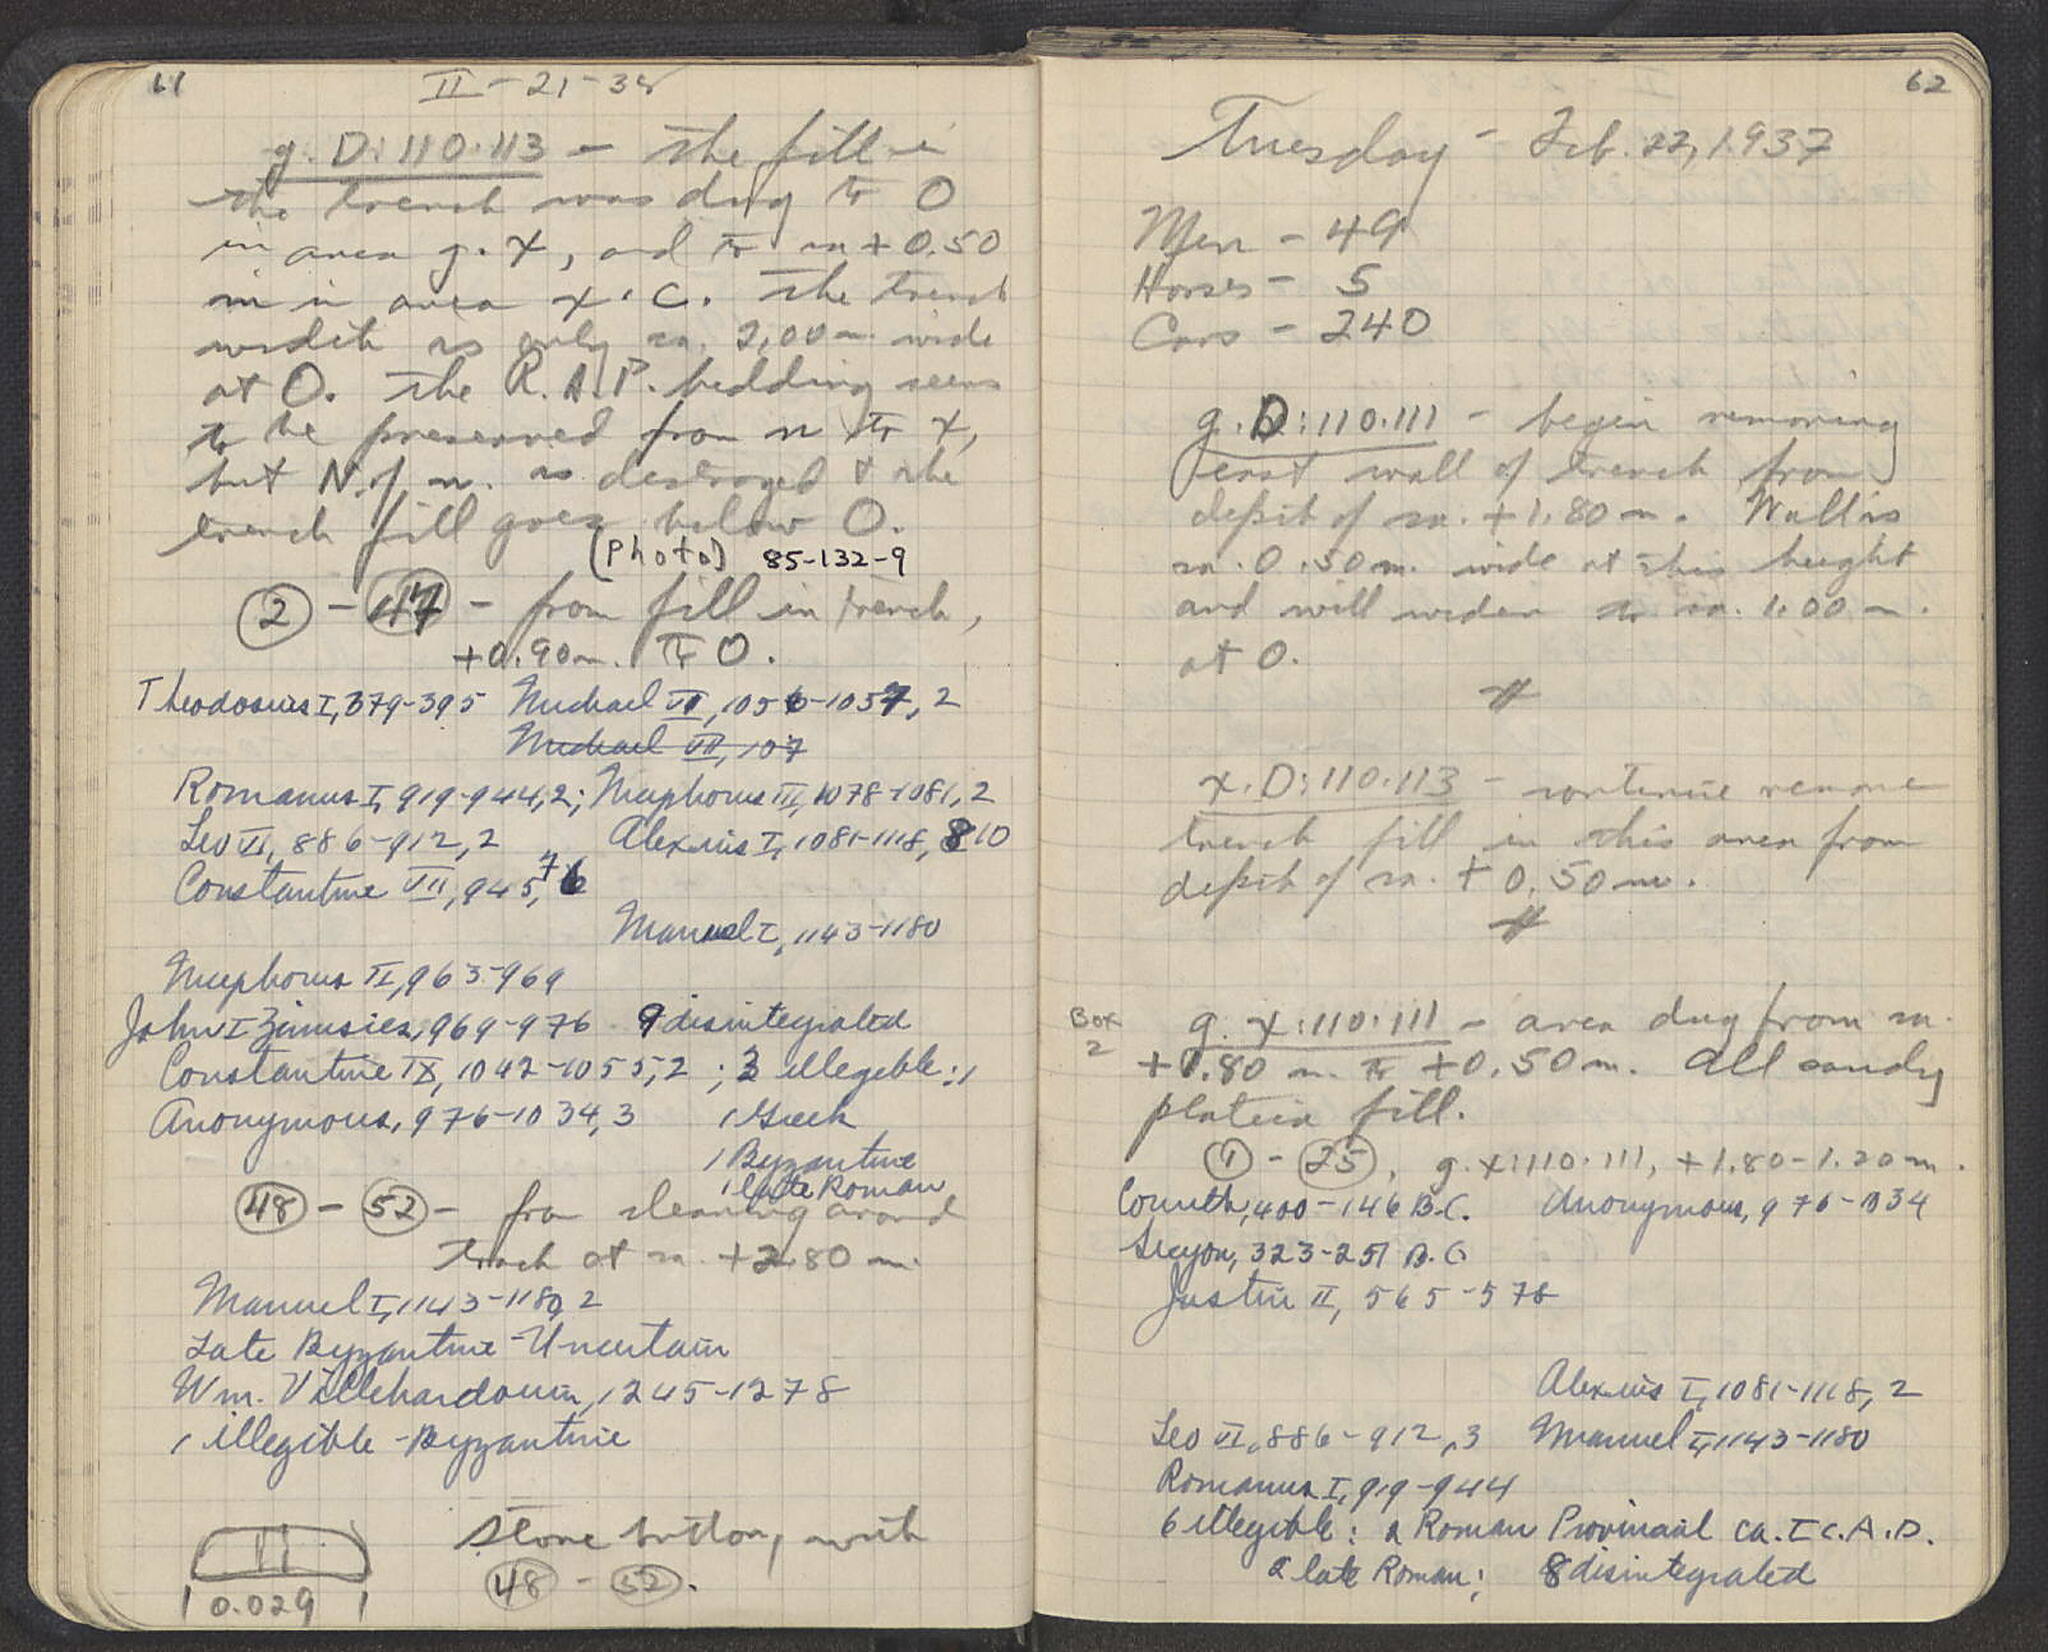 61
II-21-38
g.D:110.113 - The fill in
the trench was dug to 0
in area g.X, and to ca + 0.50
m in area X.C. The trench
width is only ca. 2.00 m. wide
at 0. The R.A.P. bedding seems
to be preserved from n to X,
but N. of n. is destroyed & the
trench fill goes below 0.
[Photo] 85-132-9
2 - 47 - from fill in trench,
+0.90m. to 0.
Theodosius I, 379-395 Michael VI, 1056-1057, 2
Michael VII, 107
Romanus I, 919-944, 2; Nicephorus III, 1078-1081, 2
Leo VI, 886-912, 2 Alexius I, 1081-1118, 10
Constantine VII, 945, 7
Manuel I, 1143-1180
Nicephorus II, 963-969
John I Zimisces, 969-976 9 disintegrated
Constantine IX, 1042-1055, 2 ; 3 illegible: 1
Anonymous, 976-1034, 3 1 Greek
1 Byzantine
1 late Roman
48 - 52 - from cleaning around
trench at ca. +2.80 m.
Manuel I, 1143-1180, 2
Late Byzantine-Uncertain
Wm. Villehardouin, 1245-1278
1 illegible-Byzantine
Stone button, with
48 - 52.
0.029
62
Tuesday - Feb. 22, 1937
Men - 49
Horses - 5
Cars - 240
g.D:110.111 - begin removing
east wall of trench from
depth of ca. +1.80 m. Wall is
ca. 0.50 m. wide at this height
and will widen to ca. 1.00 m.
at 0.
#
x.D:110.113 - continue remove
trench fill in this area from
depth of ca. + 0.50 m.
#
Box
2
g.x:110.111 - area dug from ca.
+1.80 m. to +0.50 m. All sandy
plateia fill.
1 - 25, g.x:110.111, +1.80-1.20 m.
Corinth, 400-146 B.C. Anonymous, 976-1034
Sicyon, 323-251 B.C.
Justin II, 565-578
Alexius I, 1081-1118, 2
Leo VI, 886-912, 3 Manuel I, 1143-1180
Romanus I, 919-944
6 illegible: 2 Roman Provincial ca. I c. A.D.
2 late Roman; 8 disintegrated